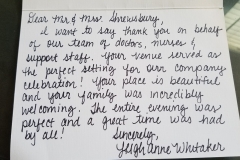 Dear Mr & Mrs Shrewsbury,
I want to say thank you on behalf
of our team of doctors, nurses &
support staff. Your venue served as
the perfect setting for our company
celebration! Your place is beautiful
and your family was incredibly
welcoming. The entire evening was
perfect and a great time was had
by all!
Sincerely,
Leigh Anne Whitaker